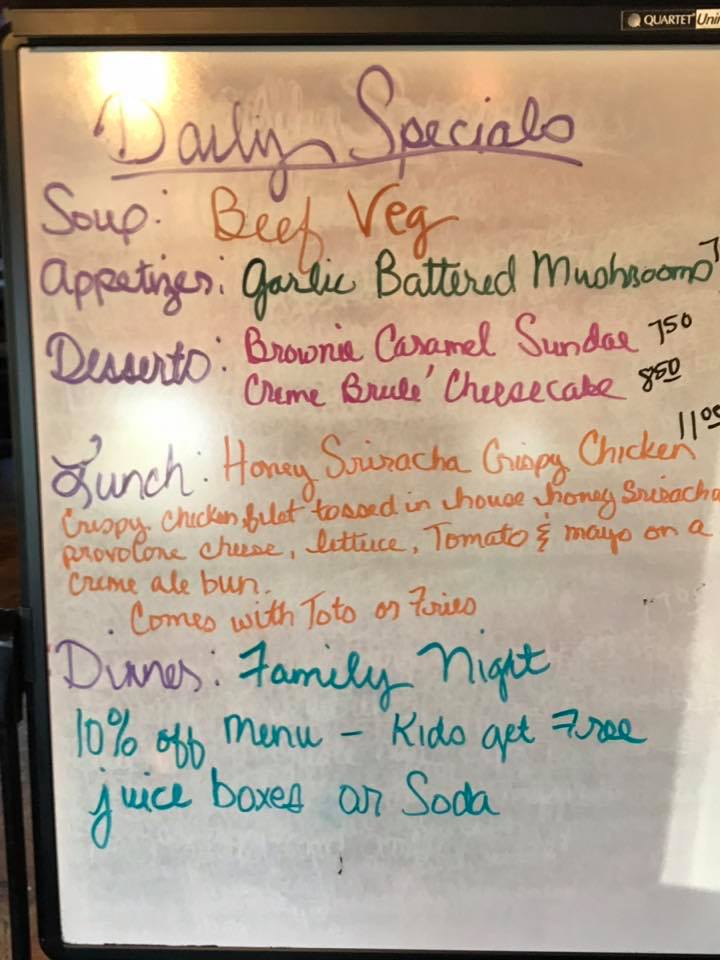 QUARTET
Daily Specials
Soup: Beef Veg
Appetizer: Garlic Battered Mushrooms 7
Desserts: Brownie Caramel Sundae 750
Creme Brule' Cheesecake 850
Lunch: Honey Sriracha Crispy Chicken 1100
Crispy chicken filet tossed in house honey Sriracha
provolone cheese, lettuce, Tomato & mayo on a
creme ale bun.
Comes with Tots or Fries
Dinner: Family Night
10% off menu - Kids get Free
juice boxes or Soda